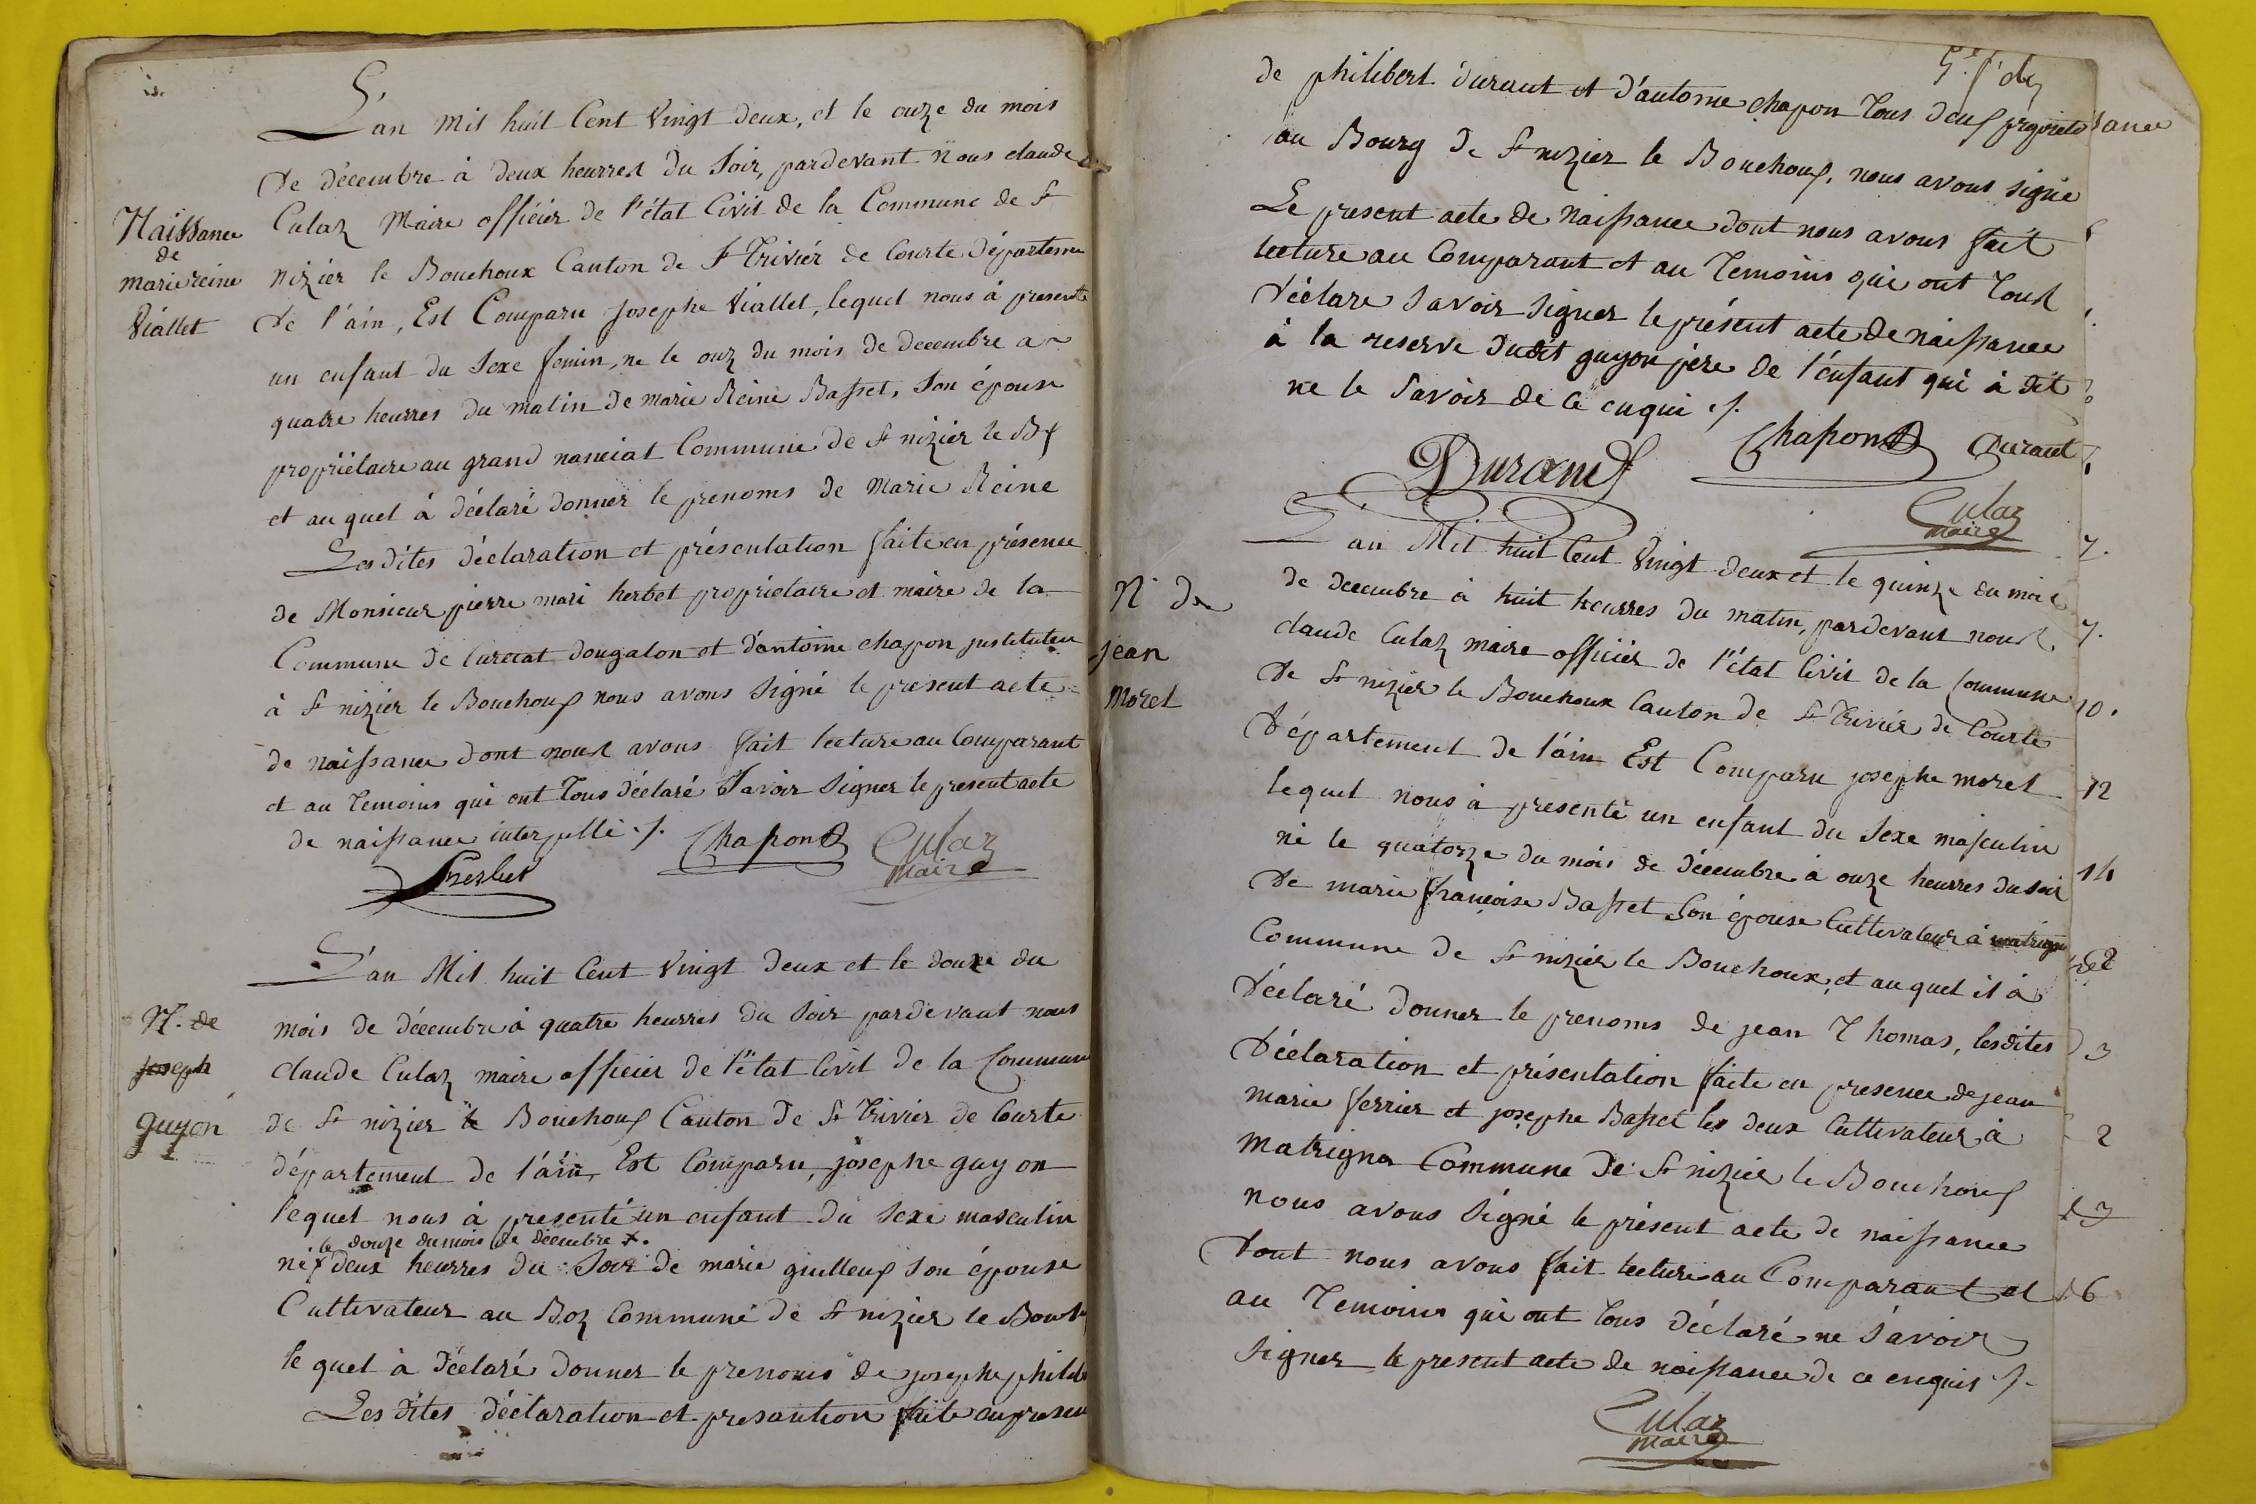 L'an mil huit Cent Vingt deux, et le onze du mois
de décembre à deux heurres du Soir, pardevant nous claude
Naissance
de
marie reine
Viallet
Culaz Maire officier de l'état Civil de la Commune de St
nizier le Bouchoux Canton de St Trivier de Courte départeme
de l'ain, Est Comparu josephe Viallet, lequel nous à presenté
un enfant du Sexe femin, ne le onz du mois de decembre a
quatre heurres du matin de marie Reine Basset, Son épouse
propriétaire au grand nanciat Commune de St nizier le Bx
et au quel à déclaré donner le prenoms de Marie Reine
Les dites déclaration et présentation faite en présence
de Monsieur pierre mari herbet propriétaire et maire de la
Commune de Curciat dongalon et d'antoine chapon justituteu
à St nizier le Bouchoux nous avons Signé le present acte
de naissance dont nous avons fait lecture au Comparant
et au Temoins qui ont Tous déclaré Savoir Signer le present acte
de naissance interpellé ./.
Chapon Culaz
maire
herbet
L'an Mil huit Cent Vingt deux et le douze du
N. de
joseph
guyon
mois de décembre à quatre heurres du Soir pardevant nous
claude Culaz maire officier de l'état Civil de la Commune
de St nizier le Bouchoux Canton de St Trivier de Courte
département de l'ain, Est Comparu, josephe guyon
lequel nous à presenté un enfant du Sexe masculin
le douze du mois de décembre x.
né x deux heurres du Soir de marie guilleux Son épouse
Cultivateur au Boz Commune de St nizier le Bouch
le quel à déclaré donner le prenoms de josephe philib
Les dites déclaration et presantion faite en presen
de philibert durant et d'antoine chapon Tous deux propriet
au Bourg de St nizier le Bouchoux, nous avons signé
Le present acte de naissance dont nous avons fait
lecture au Comparant et au Temoins qui ont Tous
déclare Savoir Signer le présent acte de naissance
à la reserve dudit guyon père de l'énfant qui à dit
ne le Savoir de ce enqui ./.
Chapon Durant
Durand
Culaz
maire
L'an Mil huit Cent Vingt deux et le quinze du mois
N. de
jean
Morel
de decembre à huit heurres du matin, pardevant nous
claude Culaz maire officier de l'état Civil de la Commune
de St nizier le Bouchoux Canton de St Trivier de Courte
Département de l'ain Est Comparu josephe morel
lequel nous à presenté un enfant du Sexe masculin
né le quatorze du mois de décembre à onze heurres du soir
de marie françoise Basset Son épouse Cultivateur à matrigna
Commune de St nizier le Bouchoux, et au quel il à
déclaré donner le prenoms de jean Thomas, les dites
déclaration et présentation faite en presence de jean
marie ferrier et josephe Basset les deux Cultivateur à
Matrigna Commune de St nizier le Bouchoux
nous avons Signé le présent acte de naissance
dont nous avons fait lecture au Comparant et
au Temoins qui ont Tous déclaré ne Savoir
Signer le present acte de naissance de ce enquis ./.
Culaz
maire
7.
7.
10.
12
14
3
2
13
16